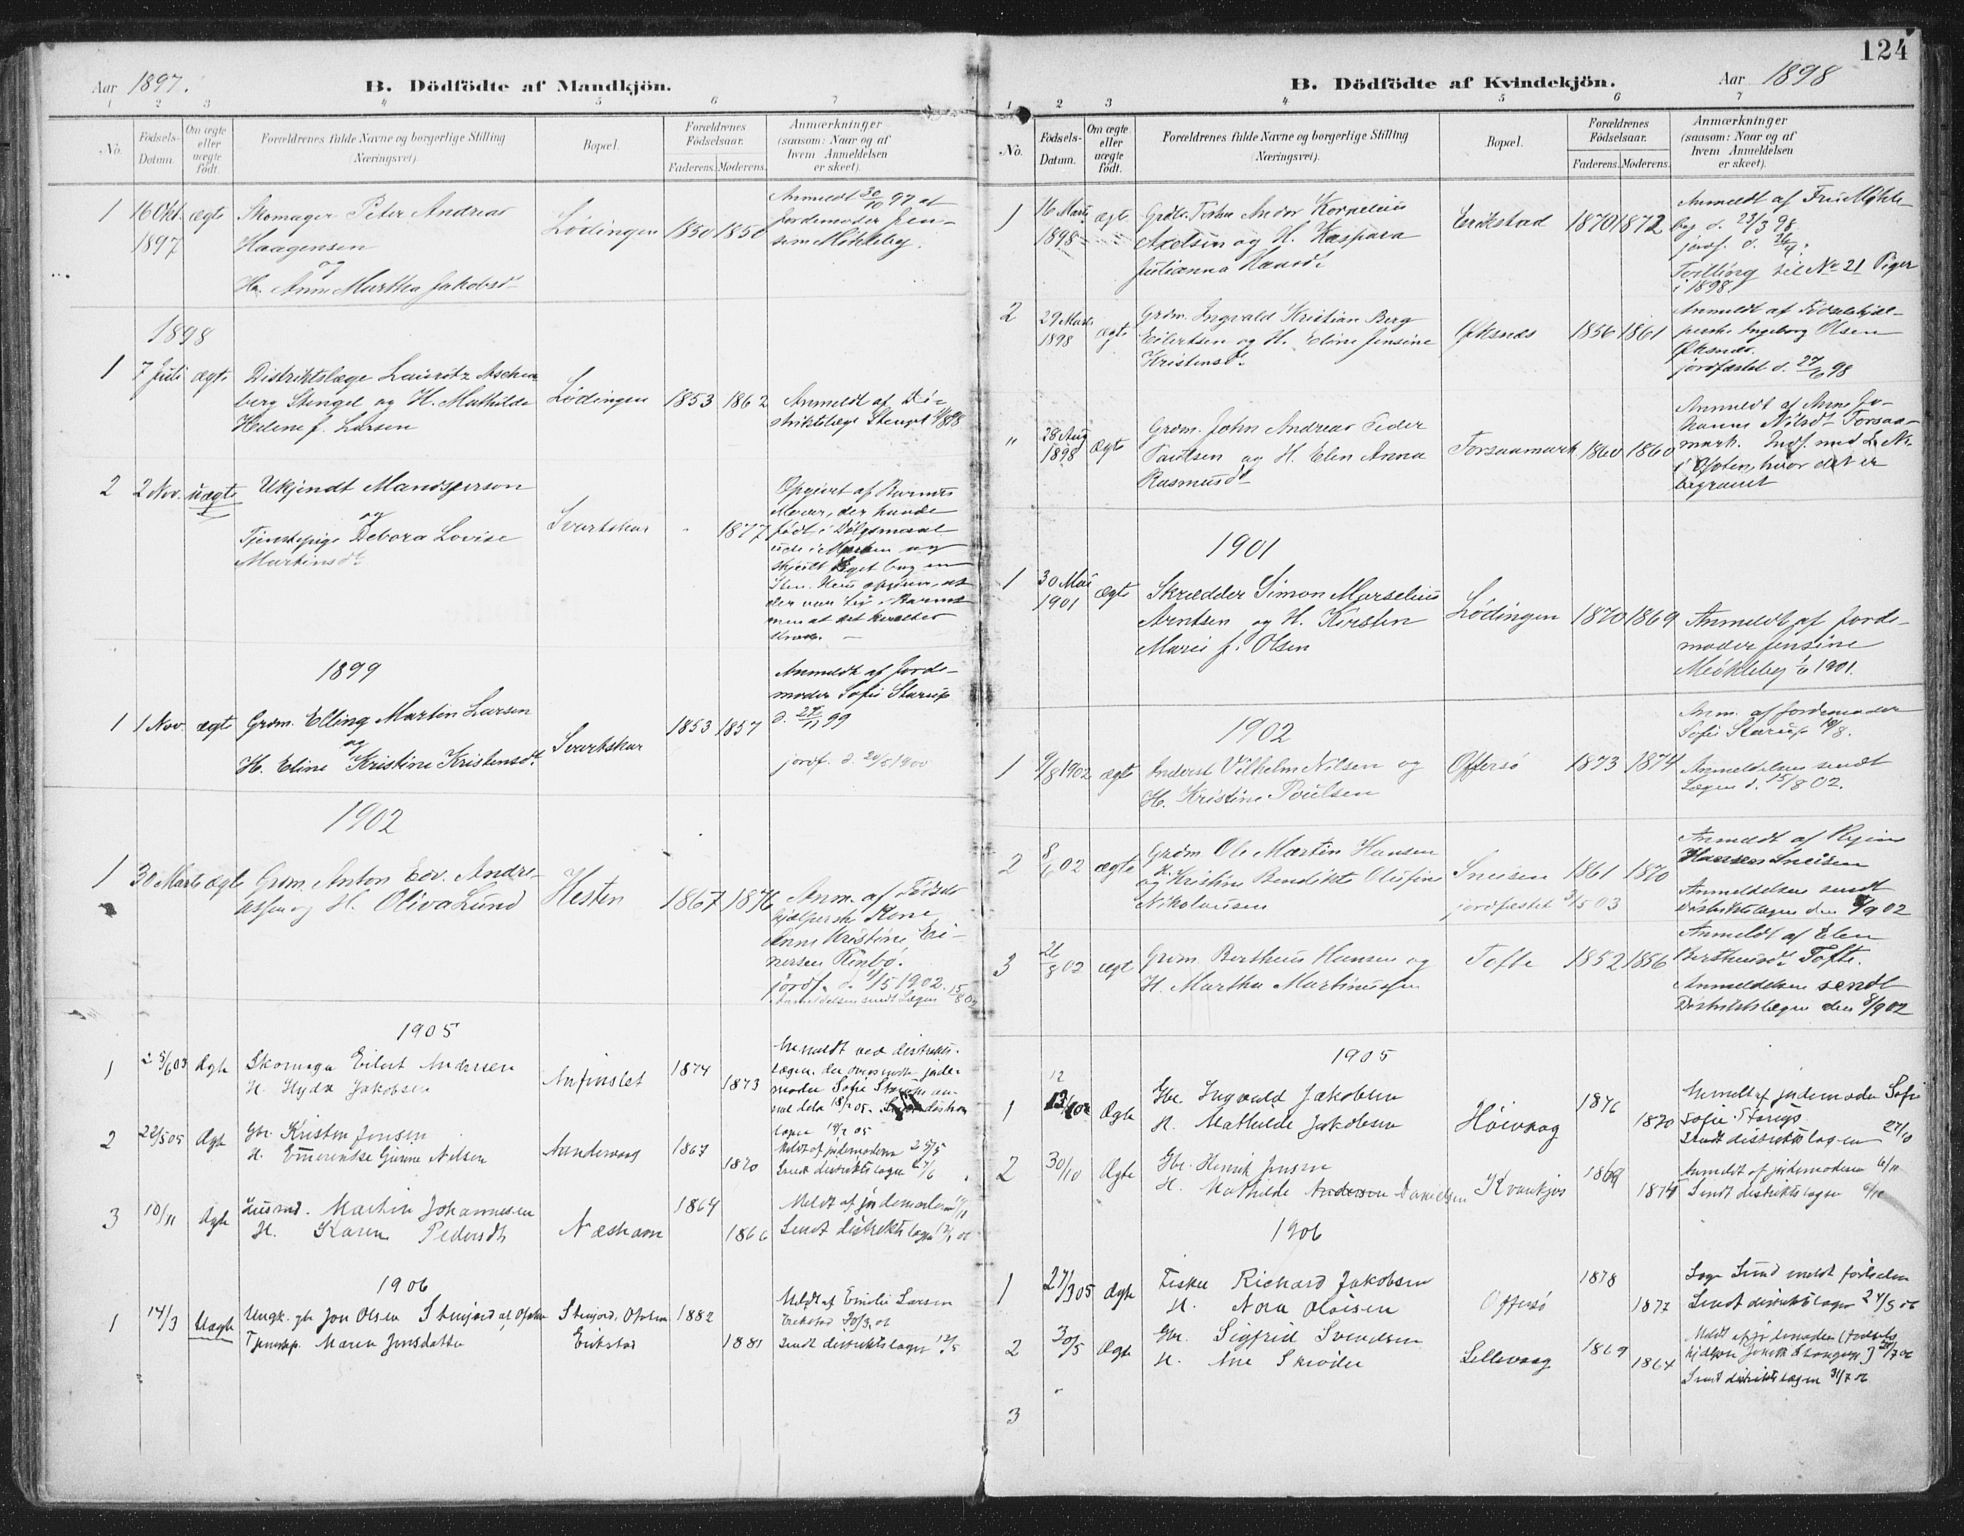 Aar 1897.
B. Dödfödte af Mandkjön.
1 2 3 4 5 6 7
No.
Födsels-Datum.
Om ægte eller uægte födt.
Forældrenes fulde Navne og borgerlige Stilling
(Næringsvei).
Bopæl.
Forældrenes Födselsaar.
Faderens. Moderens.
Anmærkninger
(saasom: Naar og af
hvem Anmeldelsen
er skeet).
1 16 Okt. 1897 ægte
Skomager Peter Andreas
Haagensen
og
H. Anne Martha Jakobsdt
Lödingen 1850 1850
Anmeldt 30/10 97 af
Jordemoder Jen-
sine Mökleby.
1898
1 7 Juli ægte
Distriktslæge Lauritz Aschen-
berg Stengel og H. Mathilde
Helene f. Larsen
Lödingen 1853 1862
Anmeldt af Di-
striktslæge Stengel
2 2 Nov. uægte
Ukjendt Mandsperson
og
Tjenstepige Debora Lovise
Martinsdt
Svartskar - 1877
Opgivet af Barnets
Moder, der havde
födt i Dölgsmaal
ude i Marken og
skjult Liget bag en
Sten.
1899
1 1 Nov. ægte
Grdm. Elling Martin Larsen
og
H. Eline Kristine Kristensdt.
Svartskar 1853 1857
Anmeldt af Jorde-
moder Sofie Starup
d. 27/11 99
jordf. d. 20/5 1900
1902
1 30 Marts ægte
Grdm. Anton Edv. Andre-
assen og H. Oliva Lund
Hesten 1867 1876
Anm. af Födsels-
hjælperske Kone
Anne Kristine Ei-
nersen Rinbö.
jordf. d. 11/5 1902.
Anmeldelsen sendt Lægen 15/8 02
1905
1 25/6 03 Ægte
Skomager Eilert Andersen
H. Hyda Jakobsen
Anfinslet 1874 1873
2 22/5 05 Ægte
Gbr. Kristen Jensen
H. Emerentse Gurine Nilsen
Sandevaag 1867 1870
Meldt af jordemoderen 25/5
Sendt distriktslægen 27/6
3 10/11 Ægte
Husmd. Martin Johannesen
H. Karen Pedersdt
Næshavn 1864 1866
Meldt af jordemoderen
Sendt distriktslægen
1906
1 14/3 Uægte
Ungk. gbr Jon Olsen Stenjord af Ofoten
Tjenestep. Maren Jensdatter
Stenjord, Ofoten
Erikstad
1882 1881
Meldt af Emilie Larsen
Erikstad 20/3.06
Sendt distriktslægen 12/5
124
B. Dödfödte af Kvindekjön.
Aar 1898
1 2 3 4 5 6 7
No.
Födsels-Datum.
Om ægte eller uægte födt.
Forældrenes fulde Navne og borgerlige Stilling
(Næringsvei).
Bopæl.
Forældrenes Födselsaar.
Faderens. Moderens.
Anmærkninger
(saasom: Naar og af
hvem Anmeldelsen
er skeet).
1 16 Marts 1898 ægte
Andor Kornelius
Axelsen og H. Kaspara
Julianna Hansdt
Erikstad 1870 1872
Anmeldt af Fru Mökle-
by d. 23/3 98
jordf. d.
Tvilling til No 21 Piger
i 1898.
2 29 Marts 1898 ægte
Grdm. Ingvald Kristian Berg
Eilertsen og H. Eline Jensine
Kristensdt.
Öksnes 1856 1861
Anmeldt af Födselshjæl-
perske Ingeborg Olsen
Öksnes.
jordfæstet d. 27/6 98
" 28 Aug 1898 Ægte
Grdm. John Andreas Peder
Paulsen og H. Elen Anna
Rasmusdt
Forsaamark 1860 1860
Anmeldt af Anne Jo-
hanna Nilsdt Forsaa-
mark.
i Ofoten, hvor det er
begravet
1901
1 30 Mai 1901 ægte
Skrædder Simon Marselius
Arntsen og H. Kirsten
Marie f. Olsen
Lödingen 1870 1869
Anmeldt af Jorde-
moder Jensine
Mökleby 1/6 1901.
1902
1 9/8 1902 ægte
Anderst Vilhelm Nilsen og
H. Kristine Poulsen
Offersö 1873 1874
Anm. af Jordemoder
Sofie Starup 10/8.
Anmeldelsen sendt
Lægen d. 15/8 02.
2 8/6 02 ægte
Grdm Ole Martin Hansen
og H. Kristine Bendikte Olufine
Nikolaisen
Sneisen 1861 1870
jordfæstet 3/5 03
Anmeldelsen sendt
Distriktslægen den 8/9 02
3 26/8 02 ægte
Grdm. Bertheus Hansen og
H. Martha Martinussen
Tofte 1852 1856
Anmeldt af Elen
Bertheusdt Tofte.
Anmeldelsen sendt
Distriktslægen den 8/9 02
1905
1 Ægte
Gbr. Ingvald Jakobsen
H. Mathilde Jakobsen
Höivaag 1876 1870
Anmeldt af jordemoder Sofie
Sofie Starup
Sendt distriktslægen 27/10
2 30/10 Ægte
Gbr. Henrik Jensen
H. Mathilde Andersen Danielsen
Kvankjos 1869 1874
Anmeldt af jordemoderen 6/11
Sendt distriktslægen
1906
1 27/3 05 Ægte
Fisker Richard Jakobsen
H. Nora Oluisen
Offersö 1878 1877
Læge Lund meldt födselen
Sendt distriktslægen 27/5 06
2 30/5 Ægte
Gbr. Sigfrid Svendsen
H. Ane Skröder
Lillevaag 1869 1864
Sendt distriktslægen 31/7 06
3